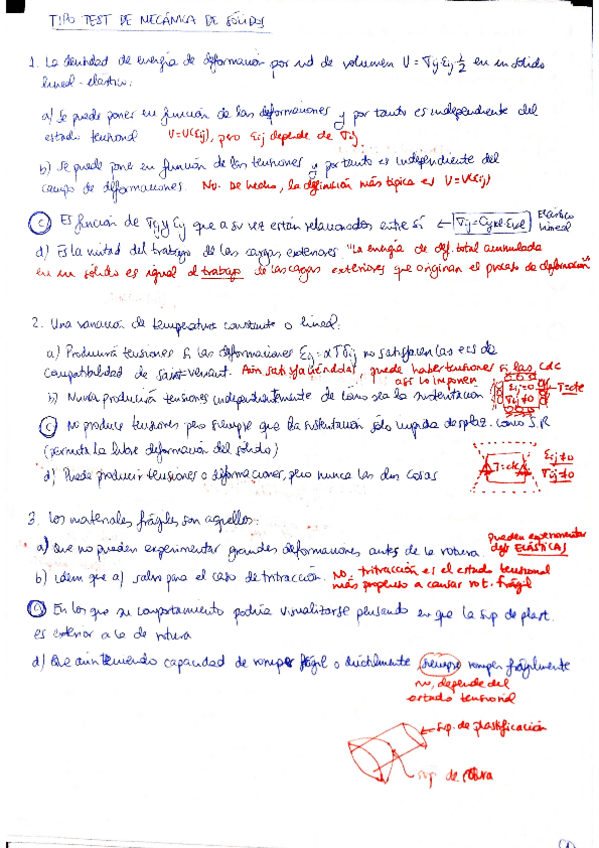 TIPO TEST DE MECÁNICA DE SÓLIDOS
1. La densidad de energía de deformación por ud de volumen U = σij εij 1/2 en un sólido
lineal-elástico:
a) Se puede poner en función de las deformaciones y por tanto es independiente del
estado tensional U=U(εij), pero εij depende de σij.
b) Se puede poner en función de las tensiones y por tanto es independiente del
campo de deformaciones. No. De hecho, la definición más típica es U=U(εij)
c) Es función de σij y εij que a su vez están relacionados entre sí ← σij = Cijkl·εkl Elástico
lineal
d) Es la mitad del trabajo de las cargas exteriores. "La energía de def. total acumulada
en un sólido es igual al trabajo de las cargas exteriores que originan el proceso de deformación"
2. Una variación de temperatura constante o lineal:
a) Producirá tensiones si las deformaciones εij = αTδij no satisfacen las ecs de
compatibilidad de Saint-Venant. Aún satisfaciéndolas, puede haber tensiones si las cdc
así lo imponen
b) Nunca producirá tensiones independientemente de como sea la sustentación
εij=0
σij≠0
T=cte
c) No produce tensiones pero siempre que la sustentación sólo impida desplaz. como S.R
(permita la libre deformación del sólido)
T=cte
εij≠0
σij≠0
d) Puede producir tensiones o deformaciones, pero nunca las dos cosas
3. Los materiales frágiles son aquellos:
a) Que no pueden experimentar grandes deformaciones antes de la rotura. Pueden experimentar
defs ELÁSTICAS
b) idem que a) salvo para el caso de tritracción. No, tritracción es el estado tensional
más propenso a causar rot. frágil
c) En los que su comportamiento podría visualizarse pensando en que la sup de plast.
es exterior a la de rotura
d) Que aún teniendo capacidad de romper frágil o dúctilmente, siempre rompen frágilmente
no, depende del
estado tensional
← sup. de plastificación
sup de rotura